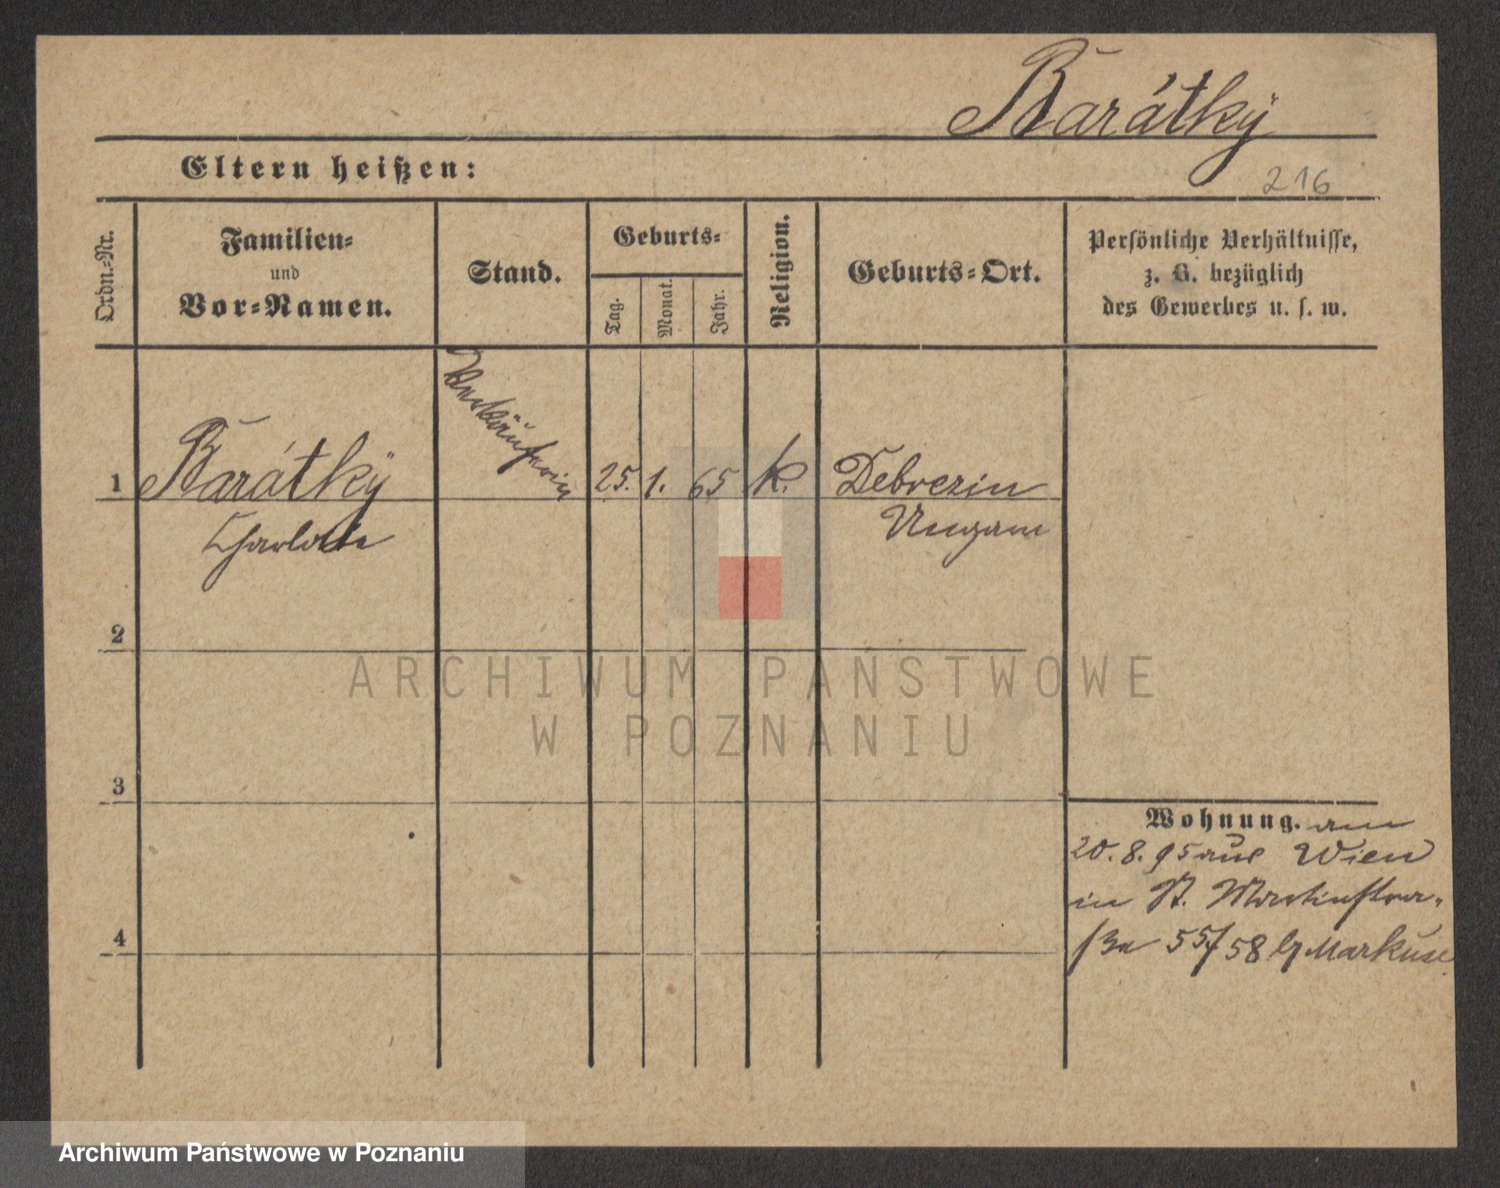 Barátkÿ
Eltern heißen:
216
Ordn.-Nr.
Familien-
und
Vor-Namen.
Stand.
Geburts-
Tag.
Monat.
Jahr.
Religion.
Geburts-Ort.
Persönliche Verhältnisse,
z. B. bezüglich
des Gewerbes u. s. w.
1 Barátkÿ Verkäuferin 25. 1. 65 k. Debrezin
Charlotte Ungarn
2
3
4
Wohnung. am
20. 8. 95 aus Wien
in St. Martinstra-
ße 55/58 b/ Markuse
ARCHIWUM PAŃSTWOWE
W POZNANIU
Archiwum Państwowe w Poznaniu